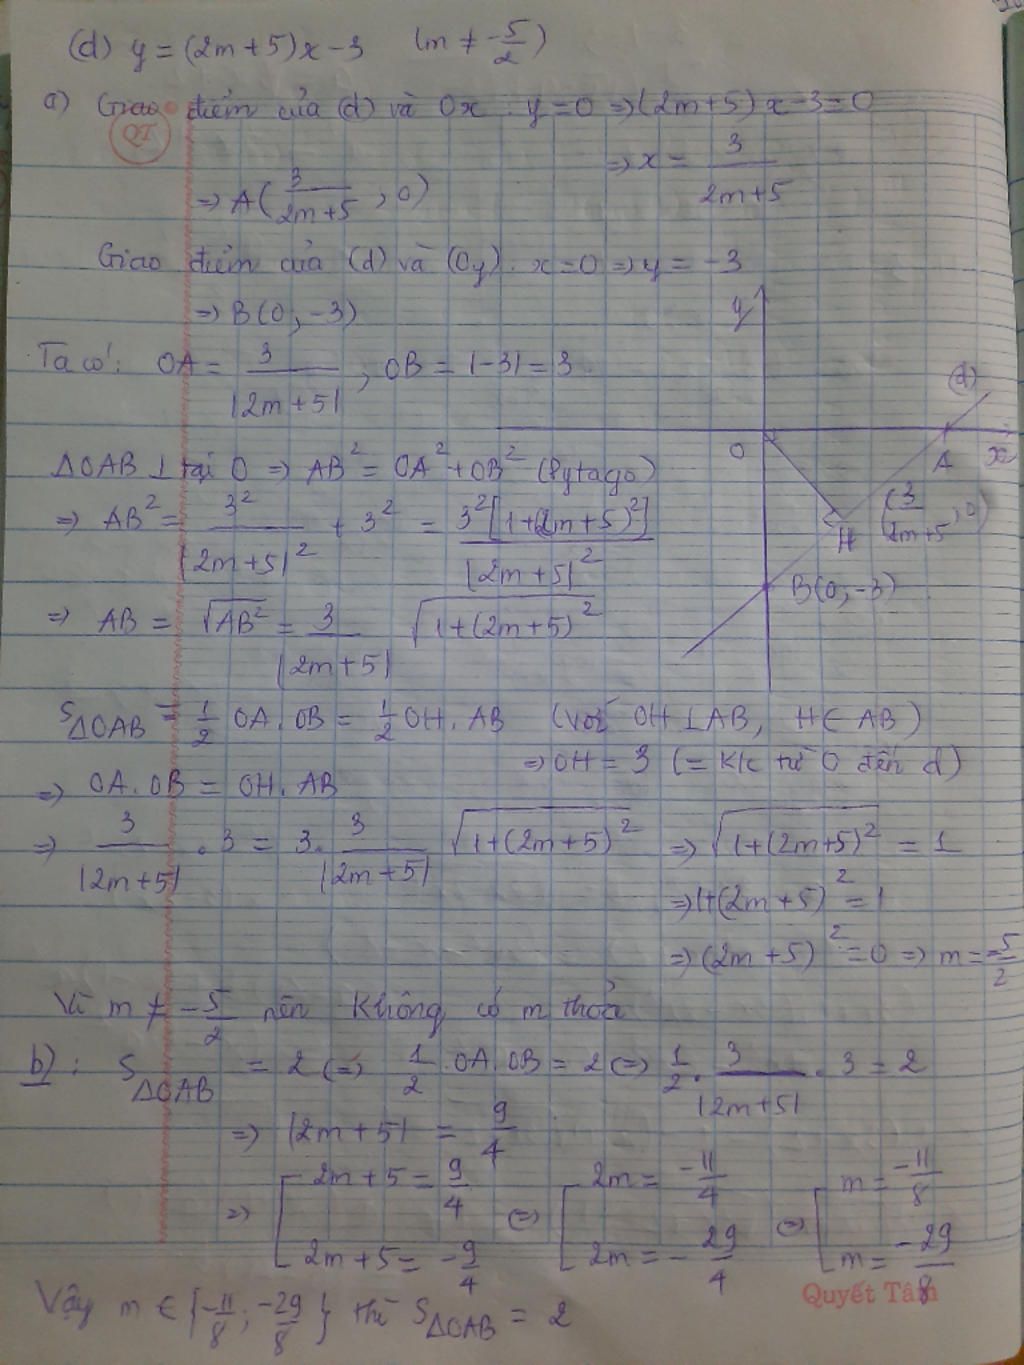 (d) y = (2m+5)x-3 (m ≠ -5/2)
a) Giao điểm của (d) và Ox : y=0 => (2m+5)x-3=0
QT
=> x = 3/(2m+5)
=> A(3/(2m+5), 0)
Giao điểm của (d) và (Oy). x=0 => y = -3
=> B(0, -3)
y
Ta có: OA = 3/|2m+5|, OB = |-3| = 3
(d)
O
A
x
ΔOAB ⊥ tại O => AB² = OA² + OB² (Pytago)
(3/(2m+5), 0)
=> AB² = 3²/|2m+5|² + 3² = 3²[1+(2m+5)²]/|2m+5|²
H
B(0,-3)
=> AB = √AB² = 3/|2m+5| √(1+(2m+5)²)
S ΔOAB = 1/2 OA.OB = 1/2 OH.AB (với OH ⊥ AB, H ∈ AB)
=> OH = 3 (= K/c từ O đến d)
=> OA.OB = OH.AB
=> 3/|2m+5| . 3 = 3. 3/|2m+5| √(1+(2m+5)²) => √(1+(2m+5)²) = 1
=> 1+(2m+5)² = 1
=> (2m+5)² = 0 => m = -5/2
Vì m ≠ -5/2 nên Không có m thoả
b): S ΔOAB = 2 (=> 1/2 .OA.OB = 2 (=> 1/2 . 3/|2m+5| . 3 = 2
=> |2m+5| = 9/4
=> [ 2m+5 = 9/4 (=> [ 2m = -11/4 (=> [ m = -11/8
2m+5 = -9/4 2m = -29/4 m = -29/8
Quyết Tâm
Vậy m ∈ {-11/8; -29/8} thì S ΔOAB = 2